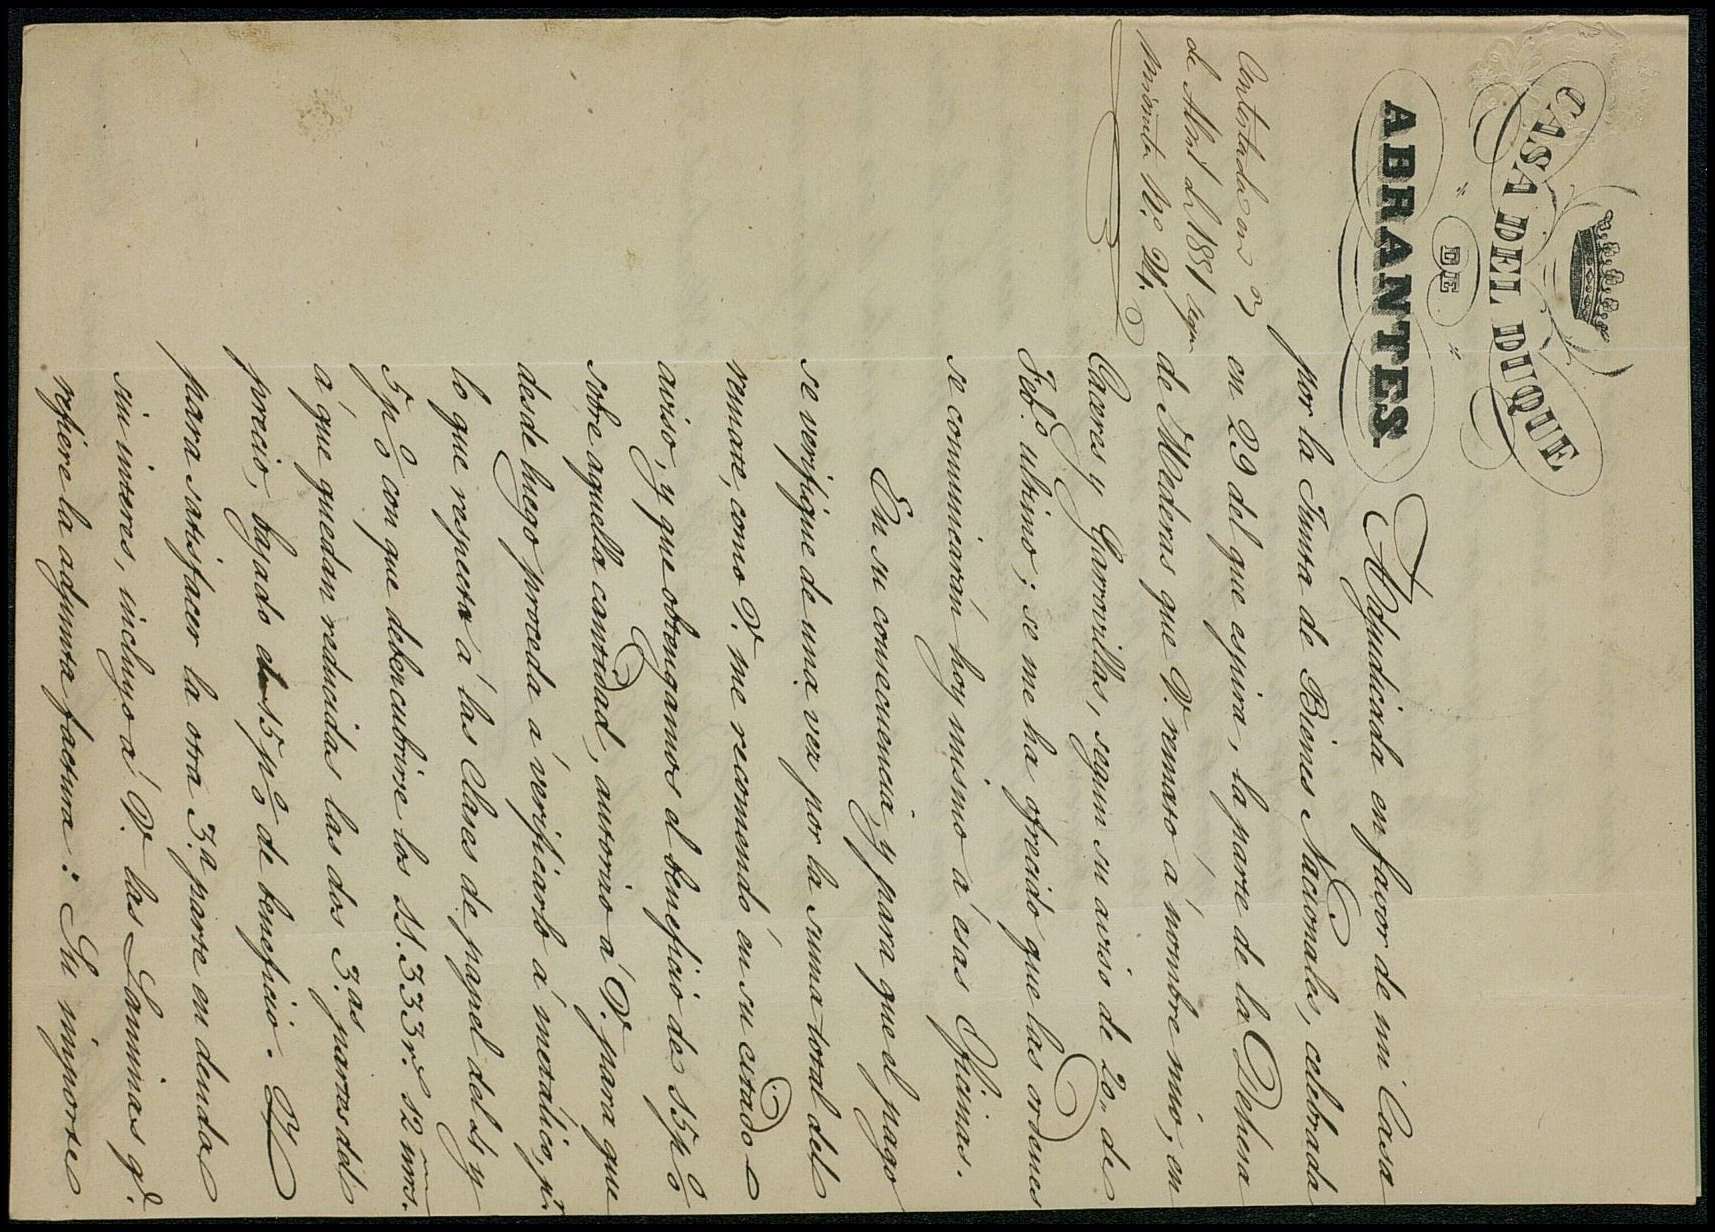 CASA DEL DUQUE
DE
ABRANTES.
Contestada en 3
de Abril de 1851 segun
minuta N.º 24.
Adjudicada en favor de mi Casa
por la Junta de Bienes Nacionales, celebrada
en 29 del que espira, la parte de la Dehesa
de Mederas que V. remató á nombre mio, en
Caceres y Garrovillas, segun su aviso de 20,, de
Feb.º ultimo; se me ha ofrecido que las ordenes
se comunicarán hoy mismo á esas Oficinas.
En su consecuencia, y para que el pago
se verifique de una vez por la suma total del
remate, como V. me recomendó en su citado
aviso, y que obtengamos el beneficio de 15 p%
sobre aquella cantidad, autorizo á V. para que
desde luego proceda á verificarlo á metalico, p.r
lo que respecta á las Clases de papel del 4 y
5 p% con que deben cubrirse los 51.333 r.s 12 mrs.
á que quedan reducidas las dos 3.as partes del
precio, bajado el 15 p% de beneficio. Y
para satisfacer la otra 3.a parte en deuda
sin interes, incluyo á V. las Laminas q.e
refiere la adjunta factura: Su importe